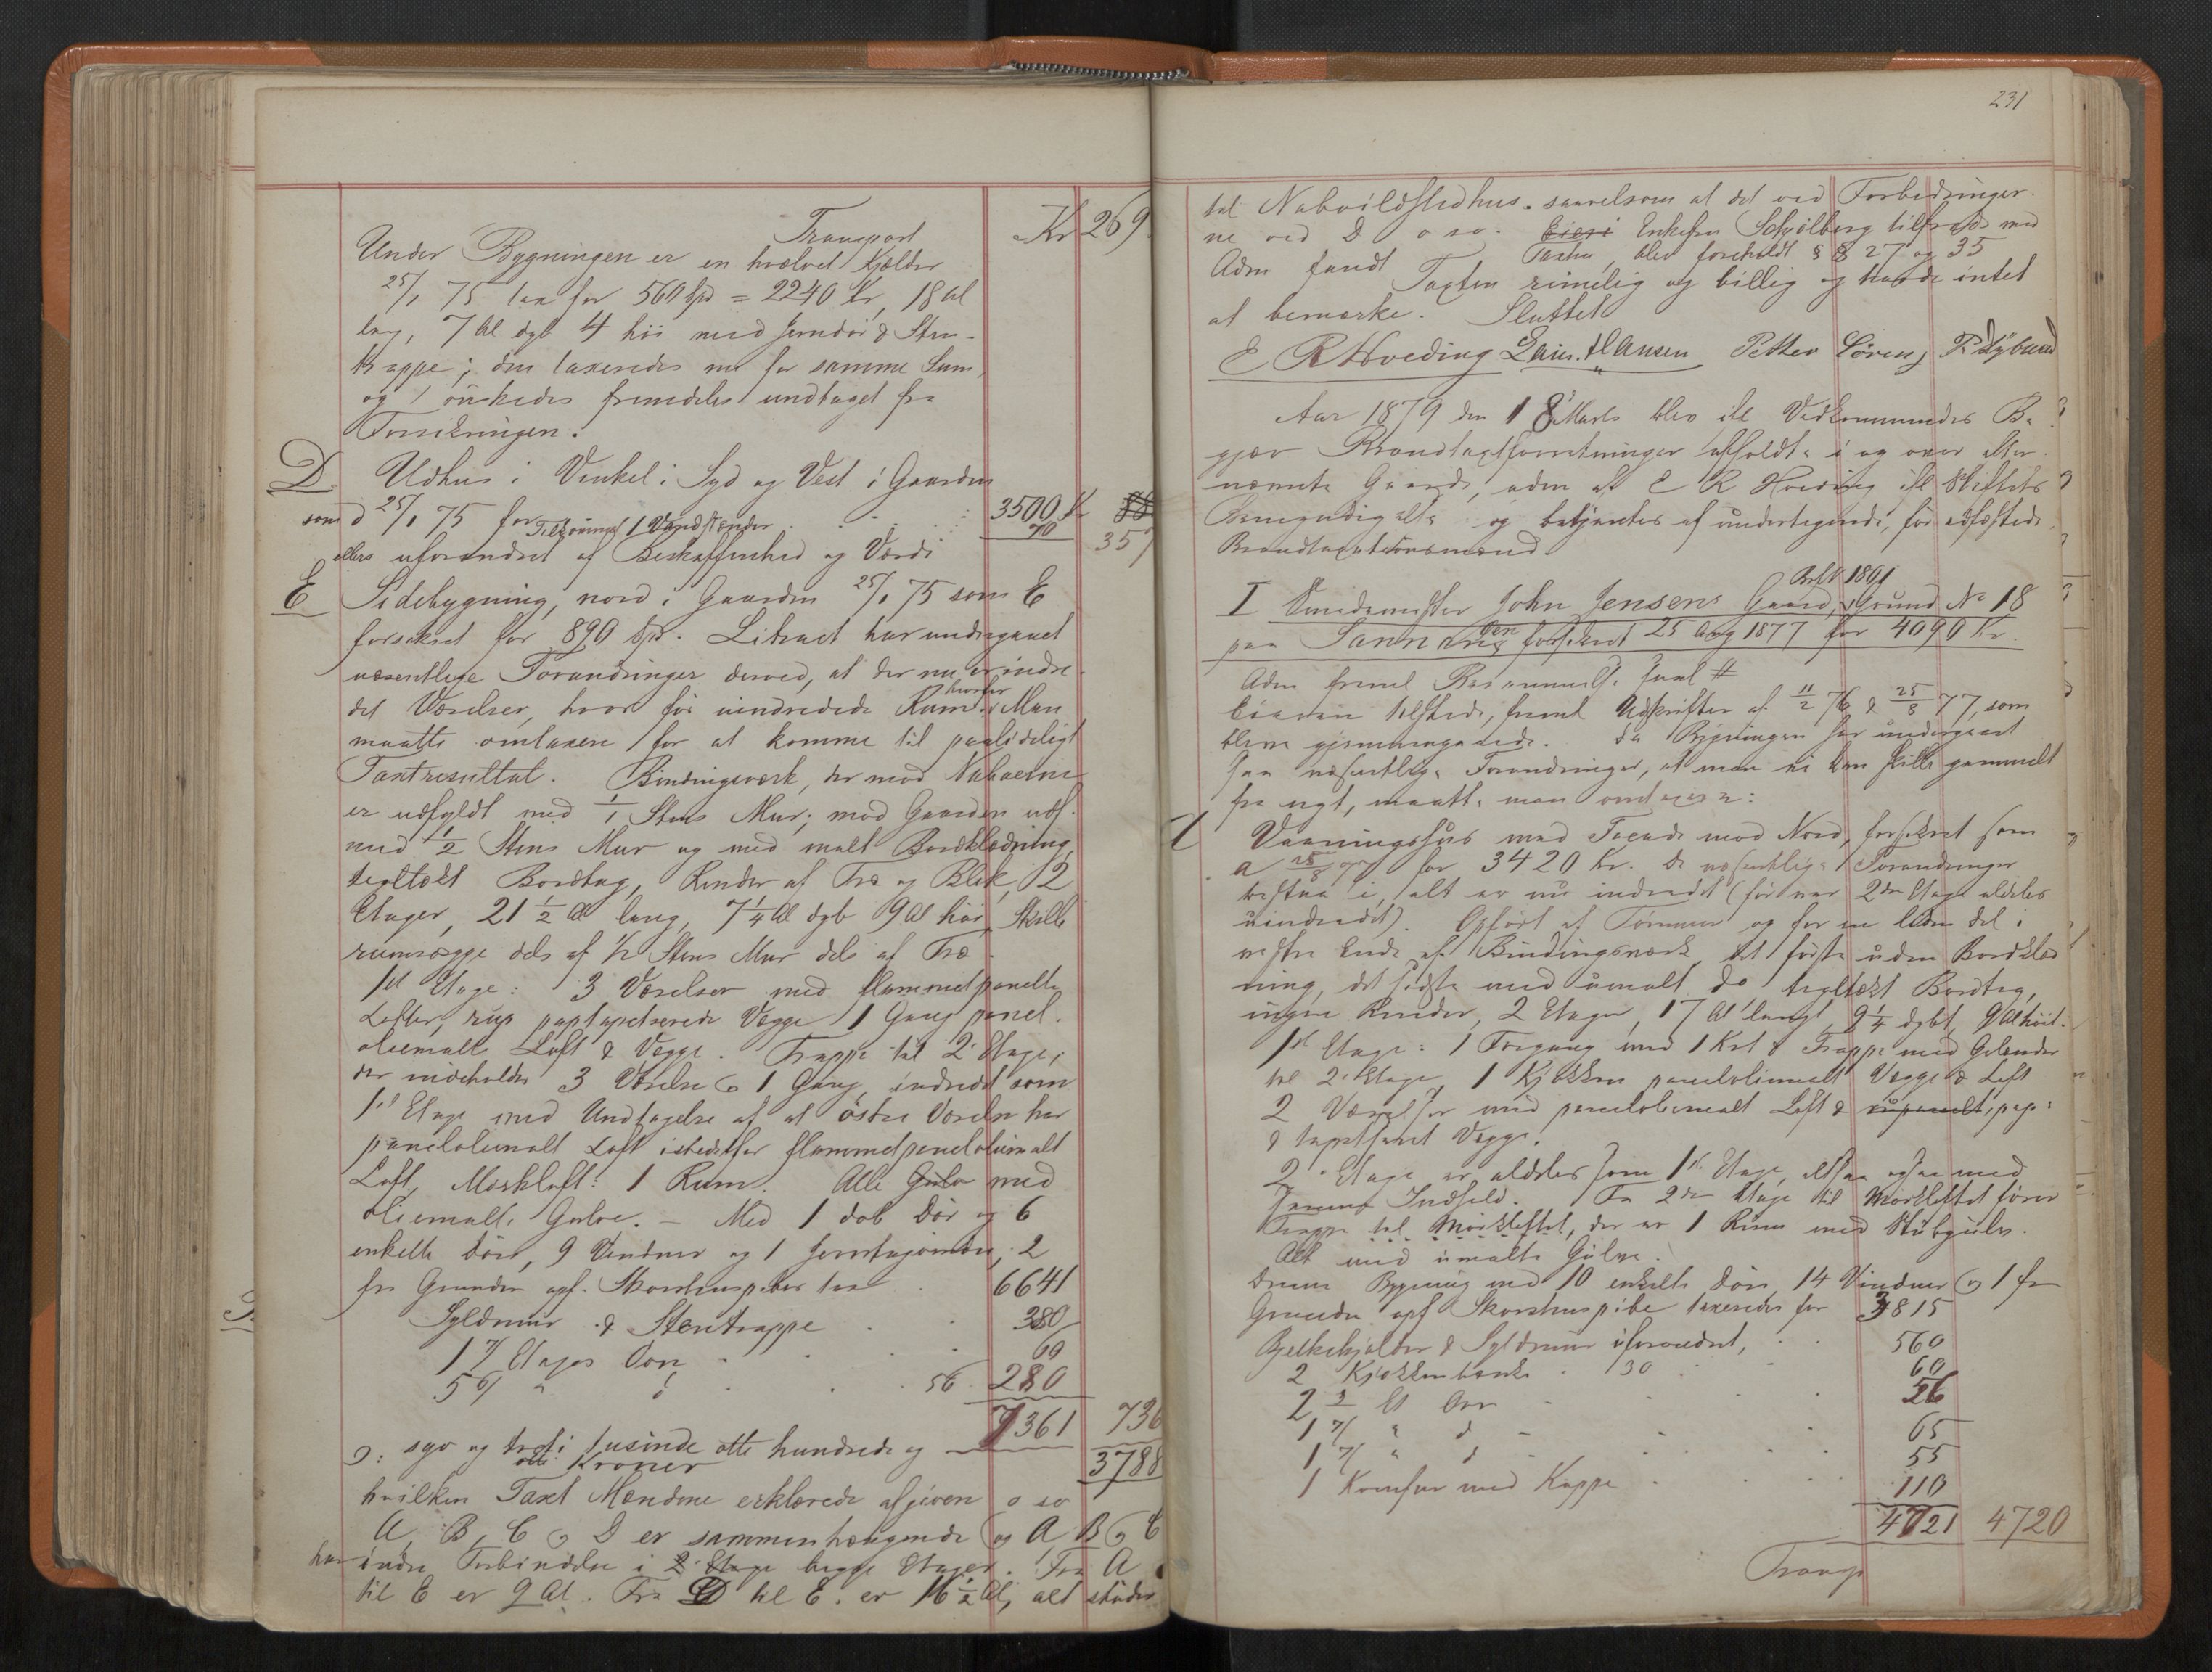 Transport Kr 269
Under Bygningen er en hvælvet Kjælder
25/1 75 tax for 560 Spd = 2240 Kr, 18 al
lang, 7 Al dyb 4 høi med Jerndør & Sten-
trappe; den taxeredes nu for samme Sum,
og ønskedes fremdeles undtaget fra
Forsikringen.
D Udhus i Vinkel i Syd og Vest i Gaarden
som d 25/1 75 for 3500 Kr
Tilkommet 1 Vandstænder 70
357
ellers uforandret af Beskaffenhed og Værdi
E Sidebygning, nord i Gaarden 25/1 75 som E
forsikret for 890 Spd. Litraet har undergaaet
væsentlige Forandringer derved, at der nu er indre-
det Værelser, hvor før uindredede Rum hvorfor Man
maatte omtaxere for at komme til paalideligt
Taxtresultat. Bindingsværk, der mod Naboerne
er udfyldt med 1/1 Stens Mur; mod Gaarden udf.
med 1/2 Stens Mur og med malt Bordklædning,
tegltækt Bordtag, Render af Træ og Blik, 2
Etager, 21 1/2 Al lang, 7 1/4 Al dyb 9 Al høi, Skille
rumsvægge dels af 1/2 Stens Mur dels af Træ.
1ste Etage: 3 Værelser med flammetpanelte
Lofter, paptapetserede Vægge 1 Gang panel.
oliemalt Loft & Vægge. Trappe til 2' Etage,
der indeholder 3 Værelser o 1 Gang indredet som
1ste Etage med Undtagelse af at østre Værelse har
paneloliemalt Loft istedetfor flammetpaneloliemalt
Loft, Mørkloft: 1 Rum. Alle Gulve med
oliemalte Gulve. — Med 1 dob Dør og 6
enkelte Døre, 9 Vinduer og 1 , 2
fra Grunden opf. Skorstenspiber tax 6641
Syldmur & Stentrappe 380
1 7/ Etages Ovn 60
5 6/ " d 56 280
7361 736
3788
ↄ: syv og treti tusinde otte hundrede og
otti Kroner
hvilken Taxt Mændene erklærede afgiven o sv
A, B, C o D er sammenhængende og A B o C
har indre Forbindelse i 2' Etage begge Etager. Fra A
til E er 9 Al. Fra D til E. er 16 1/2 Al, alt støder
231
til Naboildstedhus. saavelsom at det ved Forbedringer
ne ved D o sv. Eieri Enkefru Schjølberg tilfreds med
Taxten, blev foreholdt § § 27 og 35
Adm fandt Taxten rimelig og billig og havde intet
at bemærke. Sluttet
E R Hveding Laur. Hansen Petter Sörens
Aar 1879 den 18' Marts blev ifl Vedkommendes Be-
gjær Brandtaxtforretninger afholdt i og over efter
nævnte Gaarde, adm af E R Hveding ifl Stiftets
Bemyndigelse og betjentes af undertegnede, før edfæstede
Brandtaxationsmænd
I Smedemester John Jensens Gaard, Grund No 18
paa Sannden forsikret 25 Aug 1877 for 4090 Kr.
Adm freml
Eieren tilstede, freml Udskrifter af 11/2 76 & 25/8 77, som
bleve gjennemgaaede. Da Bygningen har undergaaet
saa væsentlige Forandringer, at man ei kan skille gammelt
fra nyt, maatte man omtaxere:
A Vaaningshus med Facade mod Nord, forsikret som
a 25/8 77 for 3420 Kr. De væsentlige Forandringer
bestaa i, alt er nu indredet (før var 2den Etage aldeles
uindredet). Opført af Tømmer og for en liden del i
vestre Ende af Bindingsværk, det første uden Bordklæd
ning, det sidste med umalt do tegltækt Bordtag,
ingen Render, 2 Etager, 17 Al langt, 9 1/4 dybt, 9 Al høit.
1ste Etage: 1 Forgang med 1 Kot & Trappe med Gelænder
til 2' Etage, 1 Kjøkken paneloliemalt Vægge & Loft
2 Værelser med paneloliemalt Loft & pap-
& tapetseret Vægge.
2' Etage er aldeles som 1ste Etage, altsaa ogsaa med
samme Indhold. Fra 2den Etage til Mørkloftet fører
Trappe til Mørkloftet, der er 1 Rum med Stubgulv.
Alt med umalte Gulve.
Denne Bygning med 10 enkelte Døre 14 Vinduer og 1 fra
Grunden opf Skorstenspibe taxeredes for 3815
Bjelkekjelder & Syldmur uforandret, 560
2 Kjøkkenbænke 30 60
2 2/ Et Ovn 56
1 7/ " d 65
1 7/ " d 55
1 Komfur med Kappe 110
4721 4720
Transp